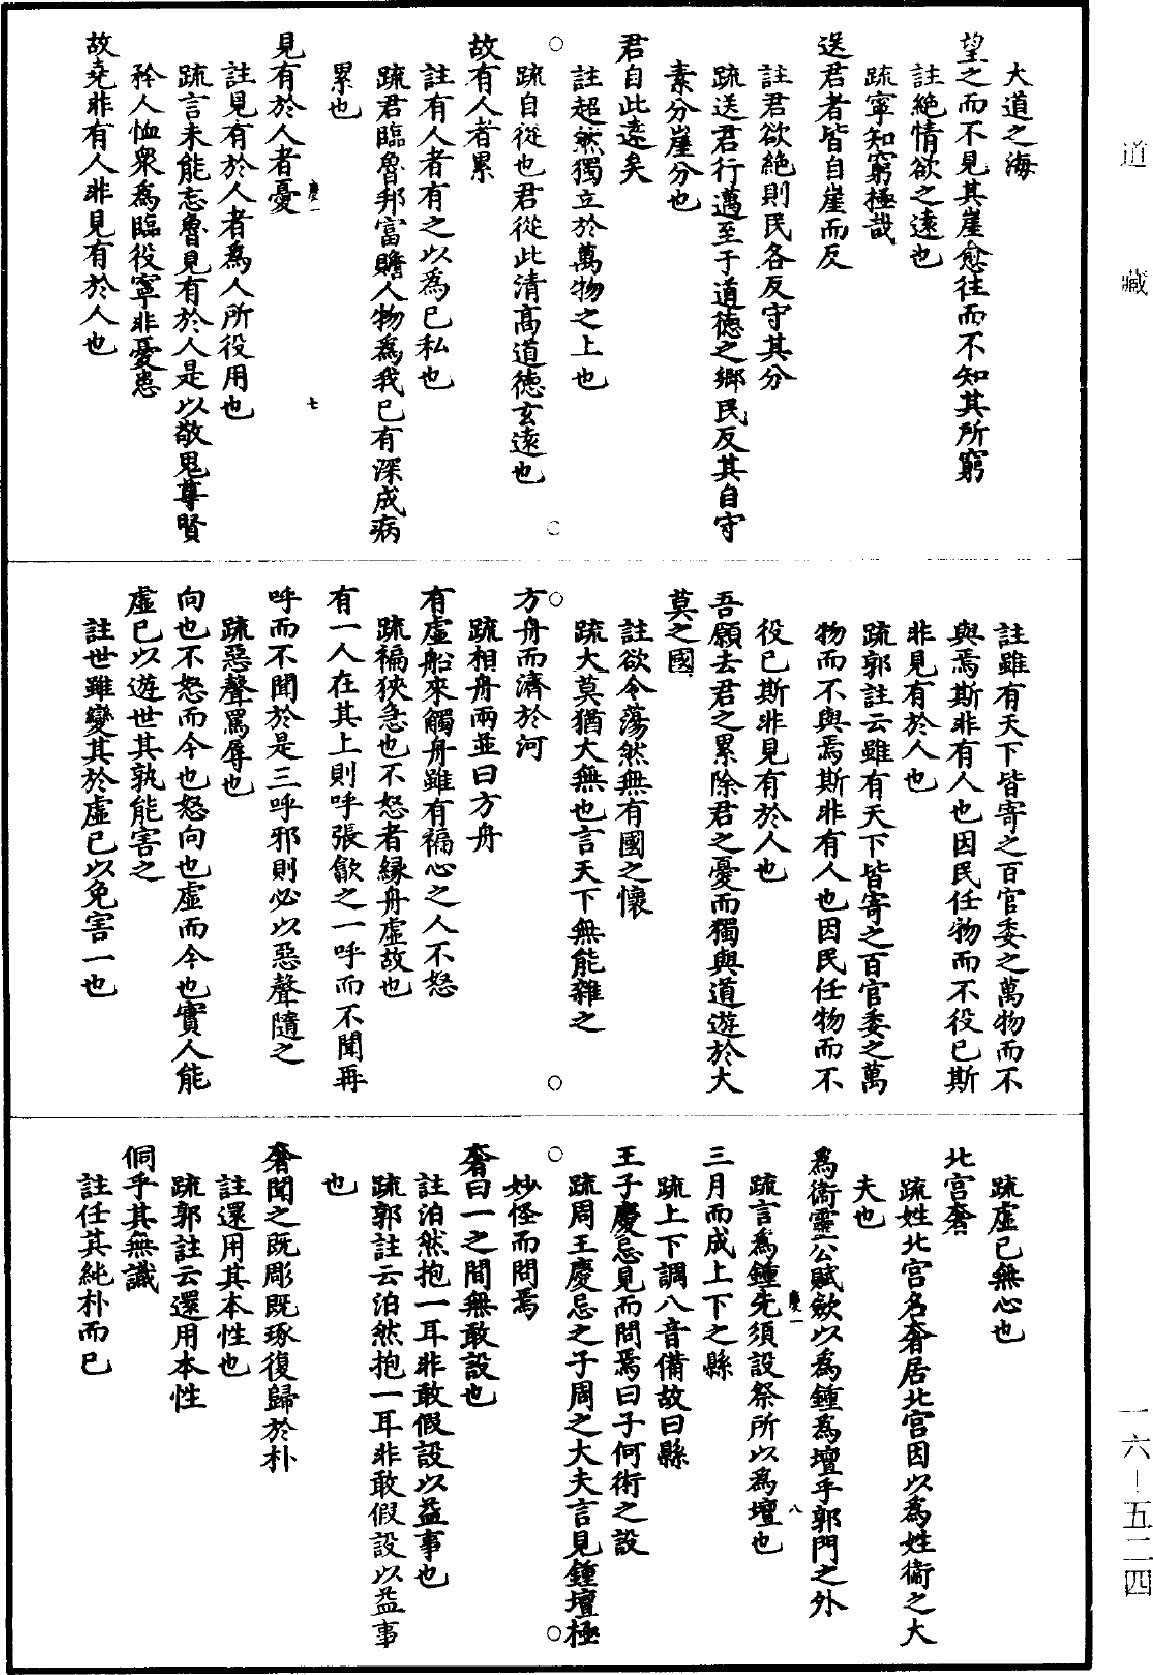 大道之海
望之而不見其崖愈往而不知其所窮
註絶情欲之遠也
疏寧知窮極哉
送君者皆自崖而反
註君欲絶則民各反守其分
疏送君行邁至于道德之鄉民反其自守
素分崖分也
君自此遠矣
註超然獨立於萬物之上也
疏自從也君從此清高道德玄遠也
故有人者累
註有人者有之以為己私也
疏君臨魯邦富贍人物為我已有深成病
累也
慶一
七
見有於人者憂
註見有於人者為人所役用也
疏言未能忘魯見有於人是以敬鬼尊賢
矜人恤衆為臨役寧非憂患
故堯非有人非見有於人也
註雖有天下皆寄之百官委之萬物而不
與焉斯非有人也因民任物而不役己斯
非見有於人也
疏郭註云雖有天下皆寄之百官委之萬
物而不與焉斯非有人也因民任物而不
役己斯非見有於人也
吾願去君之累除君之憂而獨與道遊於大
莫之國
註欲令蕩然無有國之懷
疏大莫猶大無也言天下無能雜之
方舟而濟於河
疏相舟兩並曰方舟
有虛船來觸舟雖有褊心之人不怒
疏褊狹急也不怒者緣舟虛故也
有一人在其上則呼張歙之一呼而不聞再
呼而不聞於是三呼邪則必以惡聲隨之
疏惡聲罵辱也
向也不怒而今也怒向也虛而今也實人能
虛己以遊世其孰能害之
註世雖變其於虛己以免害一也
疏虛己無心也
北宮奢
疏姓北宮名奢居北宮因以為姓衞之大
夫也
為衞靈公賦斂以為鍾為壇乎郭門之外
慶一
八
疏言為鍾先須設祭所以為壇也
三月而成上下之縣
疏上下調八音備故曰縣
王子慶忌見而問焉曰子何術之設
疏周王慶忌之子周之大夫言見鍾壇極
妙怪而問焉
奢曰一之間無敢設也
註泊然抱一耳非敢假設以益事也
疏郭註云泊然抱一耳非敢假設以益事
也
奢聞之既彫既琢復歸於朴
註還用其本性也
疏郭註云還用本性
侗乎其無識
註任其純朴而已
道藏
一六－五二四